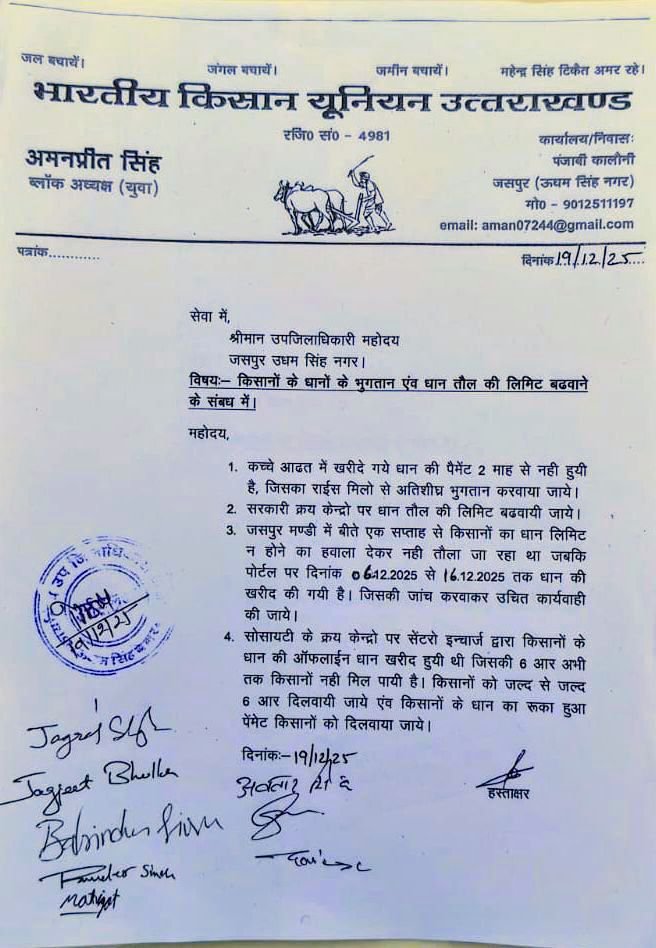 जल बचायें। जंगल बचायें। जमीन बचायें। महेन्द्र सिंह टिकैत अमर रहे।
भारतीय किसान यूनियन उत्तराखण्ड
रजि0 सं0 - 4981
अमनप्रीत सिंह
ब्लॉक अध्यक्ष (युवा)
कार्यालय/निवासः
पंजाबी कालौनी
जसपुर (ऊधम सिंह नगर)
मो0 - 9012511197
email: aman07244@gmail.com
पत्रांक............
दिनांक 19/12/25
सेवा में,
श्रीमान उपजिलाधिकारी महोदय
जसपुर उधम सिंह नगर।
विषयः– किसानों के धानों के भुगतान एंव धान तौल की लिमिट बढवाने
के संबध में।
महोदय,
1. कच्चे आढत में खरीदे गये धान की पैमेंट 2 माह से नही हुयी
है, जिसका राईस मिलो से अतिशीघ्र भुगतान करवाया जाये।
2. सरकारी क्रय केन्द्रो पर धान तौल की लिमिट बढवायी जाये।
3. जसपुर मण्डी में बीते एक सप्ताह से किसानों का धान लिमिट
न होने का हवाला देकर नही तौला जा रहा था जबकि
पोर्टल पर दिनांक 06.12.2025 से 16.12.2025 तक धान की
खरीद की गयी है। जिसकी जांच करवाकर उचित कार्यवाही
की जाये।
4. सोसायटी के क्रय केन्द्रो पर सेंटरो इन्चार्ज द्वारा किसानों के
धान की ऑफलाईन धान खरीद हुयी थी जिसकी 6 आर अभी
तक किसानों नही मिल पायी है। किसानों को जल्द से जल्द
6 आर दिलवायी जाये एंव किसानों के धान का रूका हुआ
पेंमेट किसानों को दिलवाया जाये।
दिनांकः–19/12/25
हस्ताक्षर
19/12/25
Jagjeet
Singh